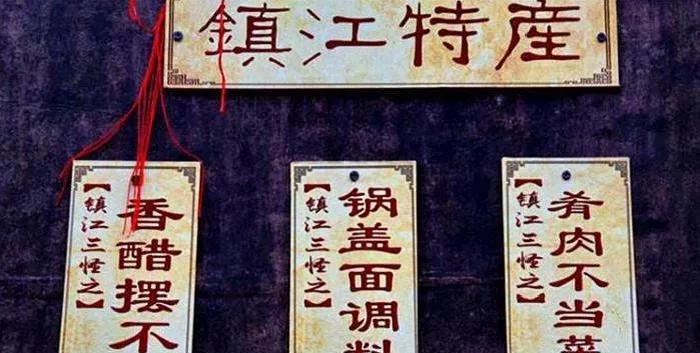 鎮江特産
【镇江三怪之】
香醋摆不
【镇江三怪之】
锅盖面调料
【镇江三怪之】
肴肉不当菜